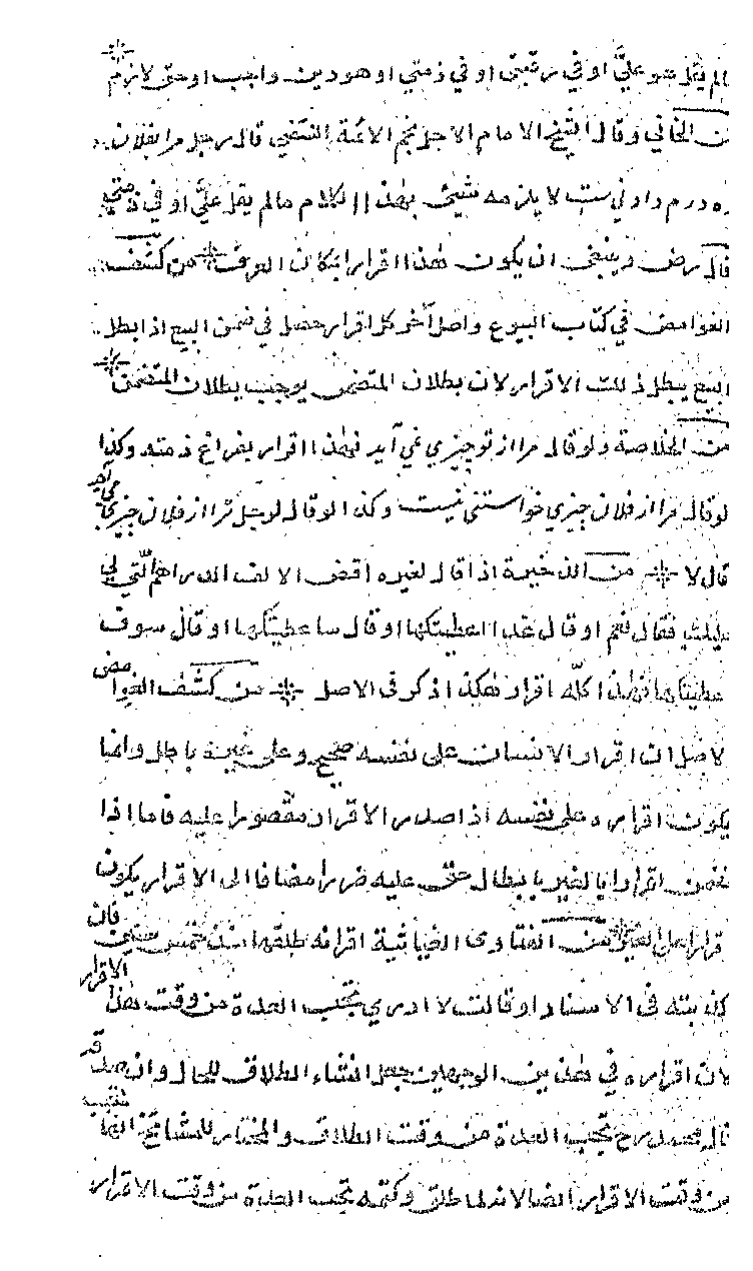 مالم يقل هو عليَّ او في رقبتى او في ذمتي او هو دين واجب او حق لازم
من الخاني وقال الشيخ الامام الاجل نجم الائمة النسفي قال رجل مرا بفلان
ده درم دادني ست لا يلزمه شيئ بهذا الكلام مالم يقل عليَّ او في ذمتي
قال رض وينبغى ان يكون هذا اقرارا لمكان العرف من كشف
الغوامض في كتاب البيوع واصل آخر كل اقرار حصل في ضمن البيع اذا بطل
البيع يبطل ذلك الاقرار لان بطلان المتضمن يوجب بطلان المتضمن
من الخلاصة ولو قال مرا از تو چيزي نمي آيد فهذا اقرار بفراغ ذمته وكذا
لو قال مرا از فلان چيزي خواستنى نيست وكذا لو قال لرجل ترا از فلان چيزي مي آيد
قال لا من الذخيرة اذا قال لغيره اقض الالف الدراهم التي لي
عليك فقال نعم او قال غدا اعطيتكها او قال ساعطيكها او قال سوف
اعطيكها فهذا كله اقرار هكذا ذكر فى الاصل من كشف الغوامض
الاصل ان اقرار الانسان على نفسه صحيح وعلى غيره باطل وانما
يكون اقراره على نفسه اذا صدر الاقرار مقصورا عليه فاما اذا
تضمن اقرارا بالغير بابطال حق عليه ضررا مضافا الى الاقرار يكون
اقرارا على الغير من الفتاوى الغياثية اقر انه طلقها منذ خمس سنين فان
كذبته فى الاسناد او قالت لا ادري تجب العدة من وقت هذا الاقرار
لان اقراره في هذين الوجهين جعل انشاء الطلاق للحال وان صدقته
قال محمد رح تجب العدة من وقت الطلاق والمختار للمشايخ انها تجب
من وقت الاقرار ايضا لانه لما طلق وكتمه تجب العدة من وقت الاقرار